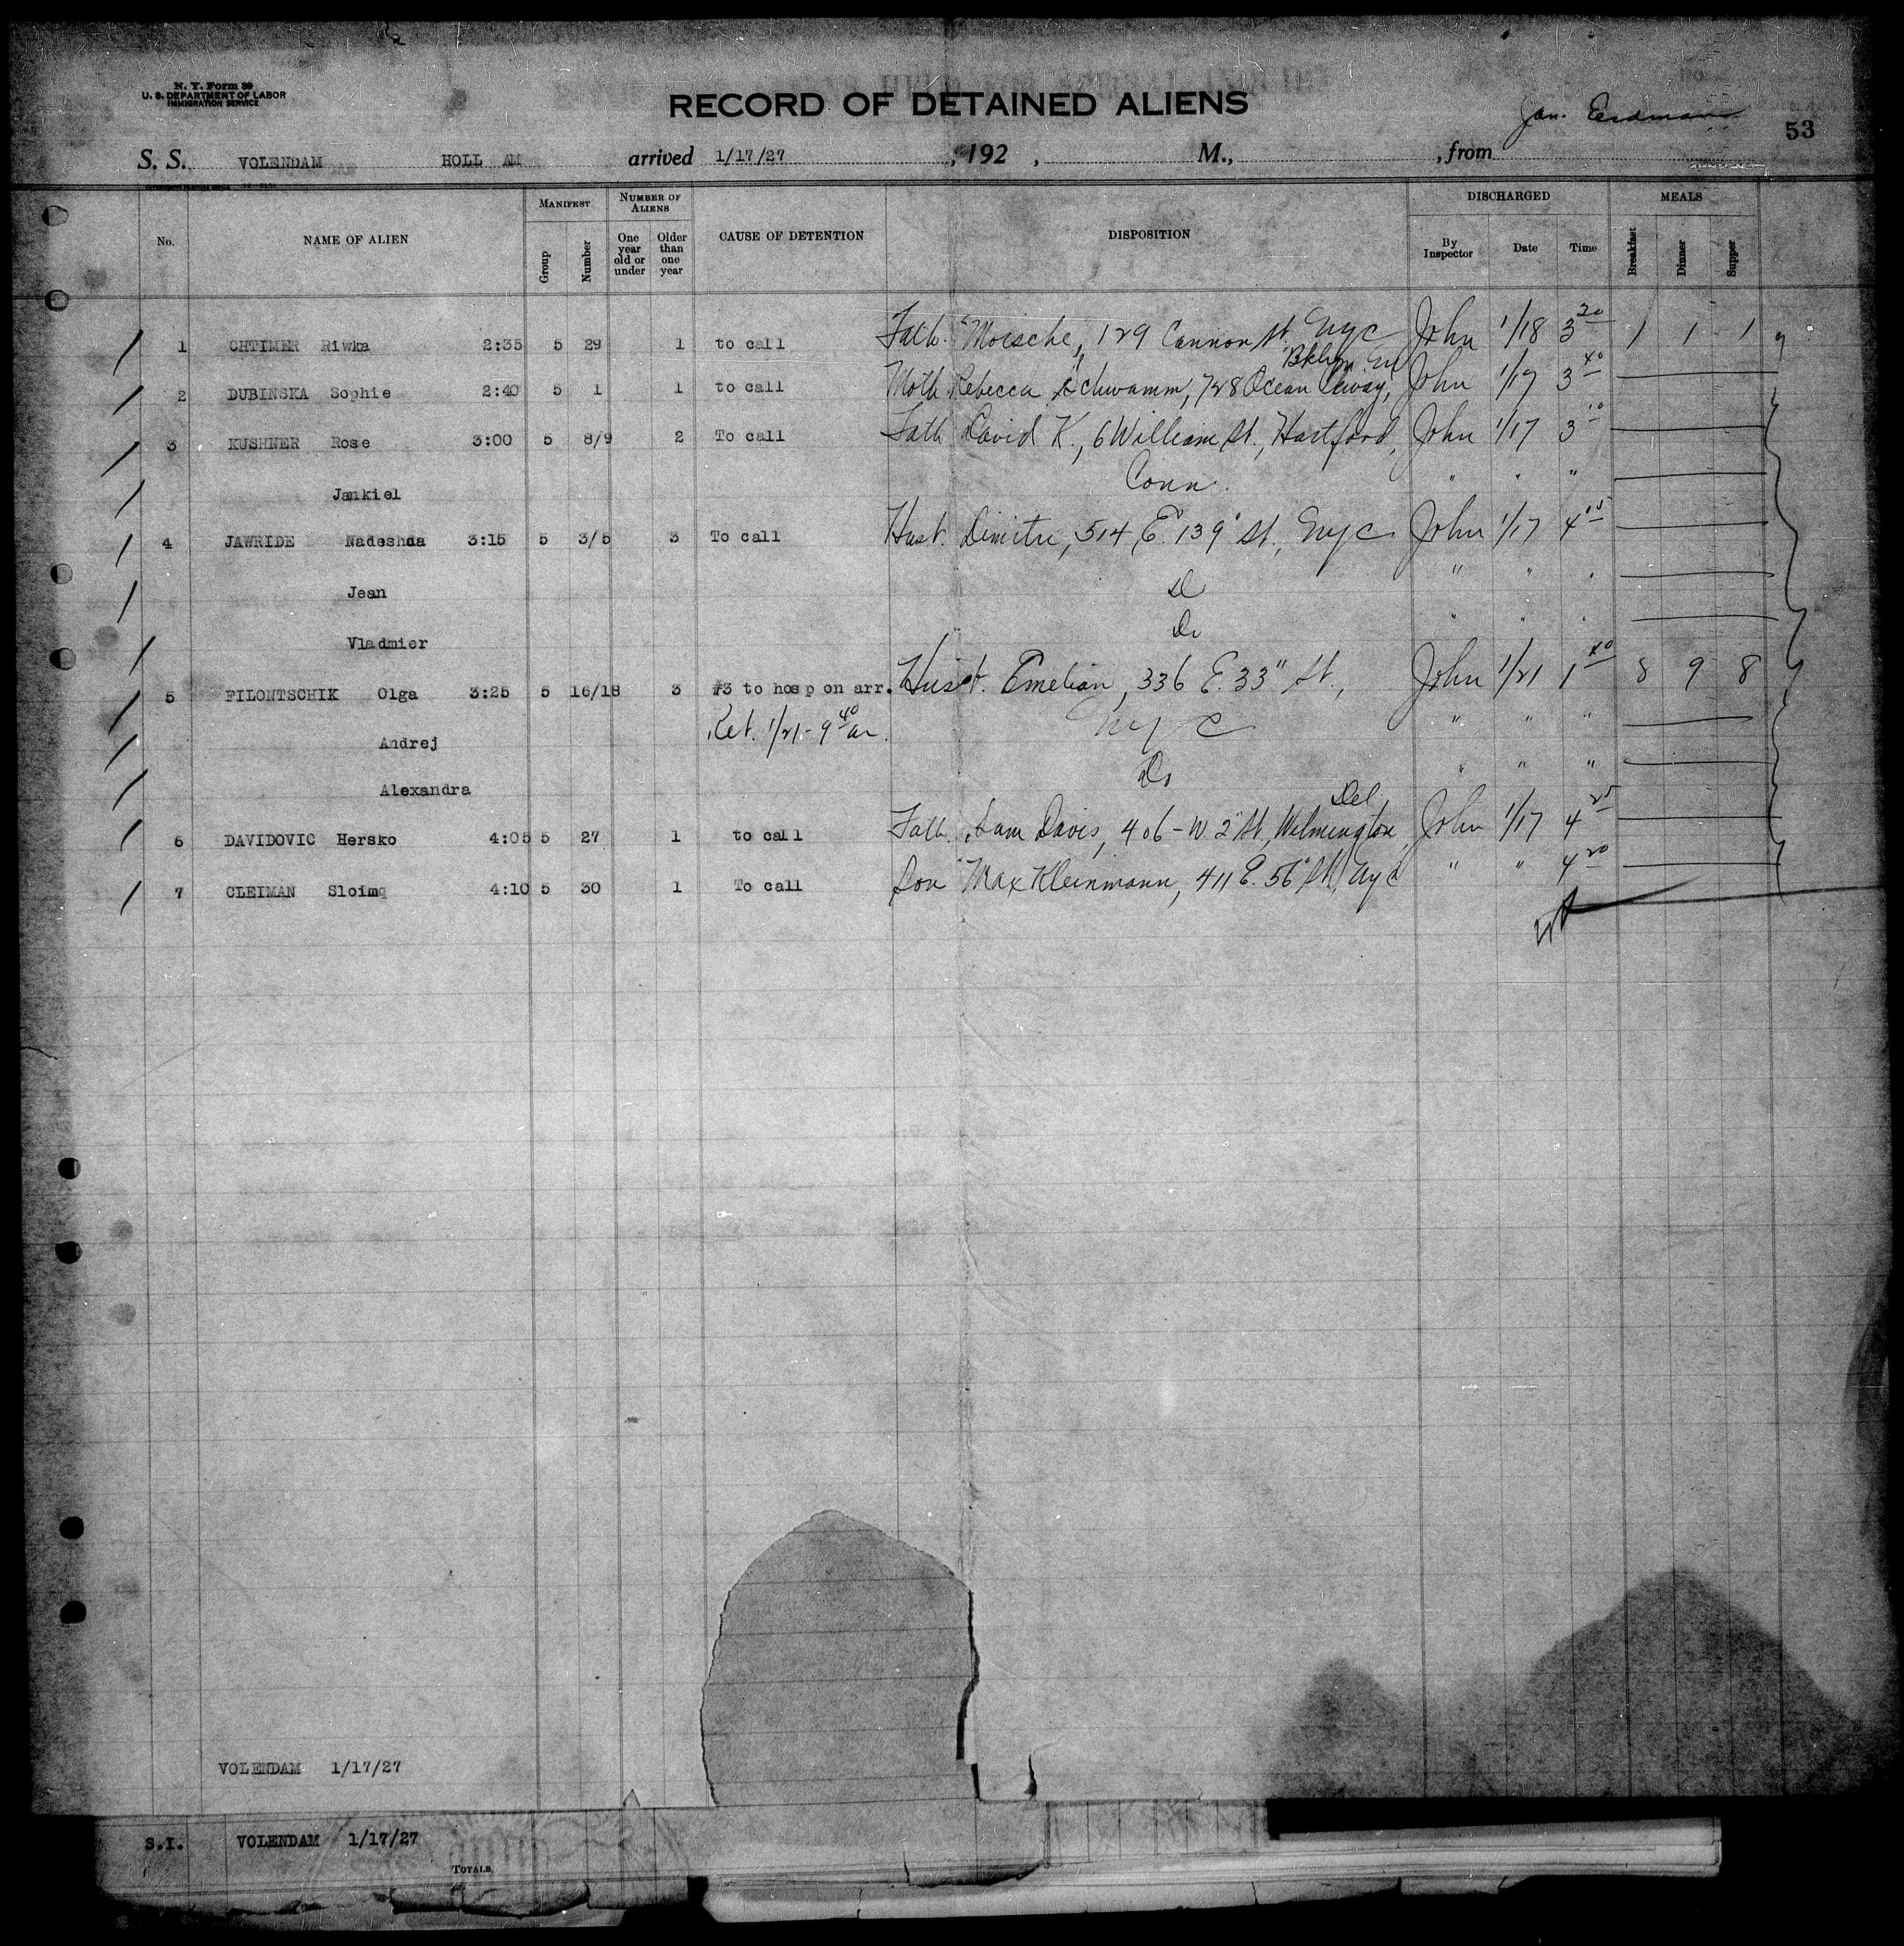 N. Y. Form 89
U. S. DEPARTMENT OF LABOR
IMMIGRATION SERVICE
RECORD OF DETAINED ALIENS
Jan. Erdmann
53
S. S. VOLENDAM HOLL AM arrived 1/17/27, 192 , M., , from
No. NAME OF ALIEN MANIFEST Group Number NUMBER OF ALIENS One year old or under Older than one year CAUSE OF DETENTION DISPOSITION DISCHARGED By Inspector Date Time MEALS Breakfast Dinner Supper
1 CHTIMER Riwka 2:35 5 29 1 to call Fath. Moische, 129 Cannon St. Nyc John 1/18 3 20 1 1 1
Bklyn
2 DUBINSKA Sophie 2:40 5 1 1 to call Moth Rebecca Schwamm, 728 Ocean John 1/19 3 40
3 KUSHNER Rose 3:00 5 8/9 2 To call Fath David K., 6 William St., Hartford, John 1/17 3 10
Jankiel Conn. " " "
4 JAWRIDE Nadeshda 3:15 5 3/5 3 To call Husb. Dimitri, 514 E. 139" St., Nyc John 1/17 4 15
Jean Do " " "
Vladmier Do " " "
5 FILONTSCHIK Olga 3:25 5 16/18 3 #3 to hosp on arr. Husb. Emelian, 336 E. 33" St., John 1/21 1 40 8 9 8
Andrej Ret. 1/21 - 9 40 am. Ny C " " "
Alexandra Do " " "
Del
6 DAVIDOVIC Hersko 4:05 5 27 1 to call Fath. Sam Davis, 406 - W. 2" St., Wilmington, John 1/17 4 25
7 CLEIMAN Sloimq 4:10 5 30 1 To call Son Max Kleinmann, 411 E. 56" St, Nyc " " 4 20
VOLENDAM 1/17/27
S.I. VOLENDAM 1/17/27
TOTALS,